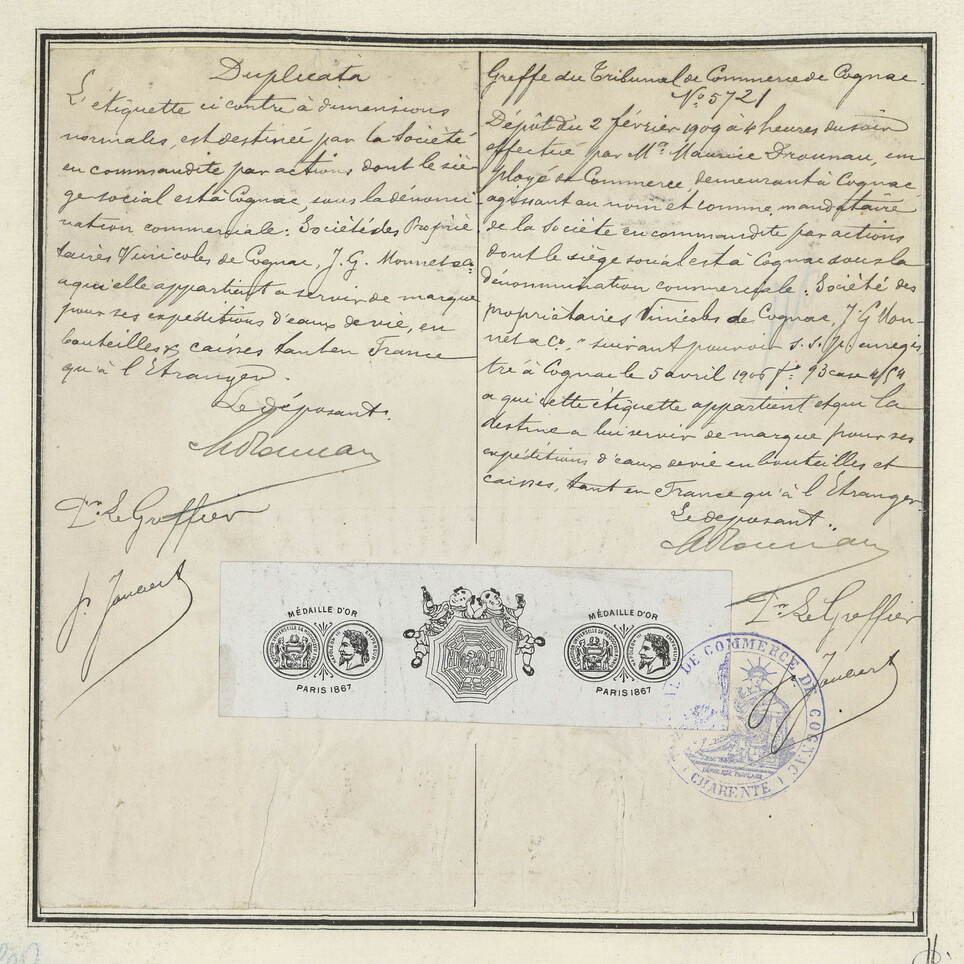 Duplicata
L'étiquette ci contre à dimensions
normales, est destinée par la Société
en commandite par actions dont le siè-
ge social est à Cognac, sous la dénomi
nation commerciale: Sociétés des Proprié
taires Vinicoles de Cognac, J. G. Monnet & Co
a qui elle appartient a servir de marque
pour ses expéditions d'eaux de vie, en
bouteilles & caisses tant en France
qu'à l'Etranger.
Le déposant.
Pr. Le Greffier
Greffe du Tribunal de Commerce de Cognac
No 5721
Dépôt du 2 février 1909 à 4 heures du soir
effectué par Mr. Maurice Drounau, em
ployé de Commerce, demeurant à Cognac
agissant au nom et comme mandataire
de la Société en commandite par actions
dont le siège social est à Cognac sous la
dénommination commerciale: Société des
Propriétaires Vinicoles de Cognac, J. G Mon-
net & Co, " suivant pouvoir s. s. p. enregis
tré à Cognac le 5 avril 1906 93 case
a qui cette étiquette appartient et qui la
destine a lui servir de marque pour ses
expéditions d'eaux de vie en bouteilles et
caisses, tant en France qu'à l'Etranger.
Le déposant.
Pr. Le Greffier
MÉDAILLE D'OR
NAPOLEON III EMPEREUR
PARIS 1867
MÉDAILLE D'OR
NAPOLEON III EMPEREUR
PARIS 1867
DE COMMERCE DE COGNAC
(CHARENTE)